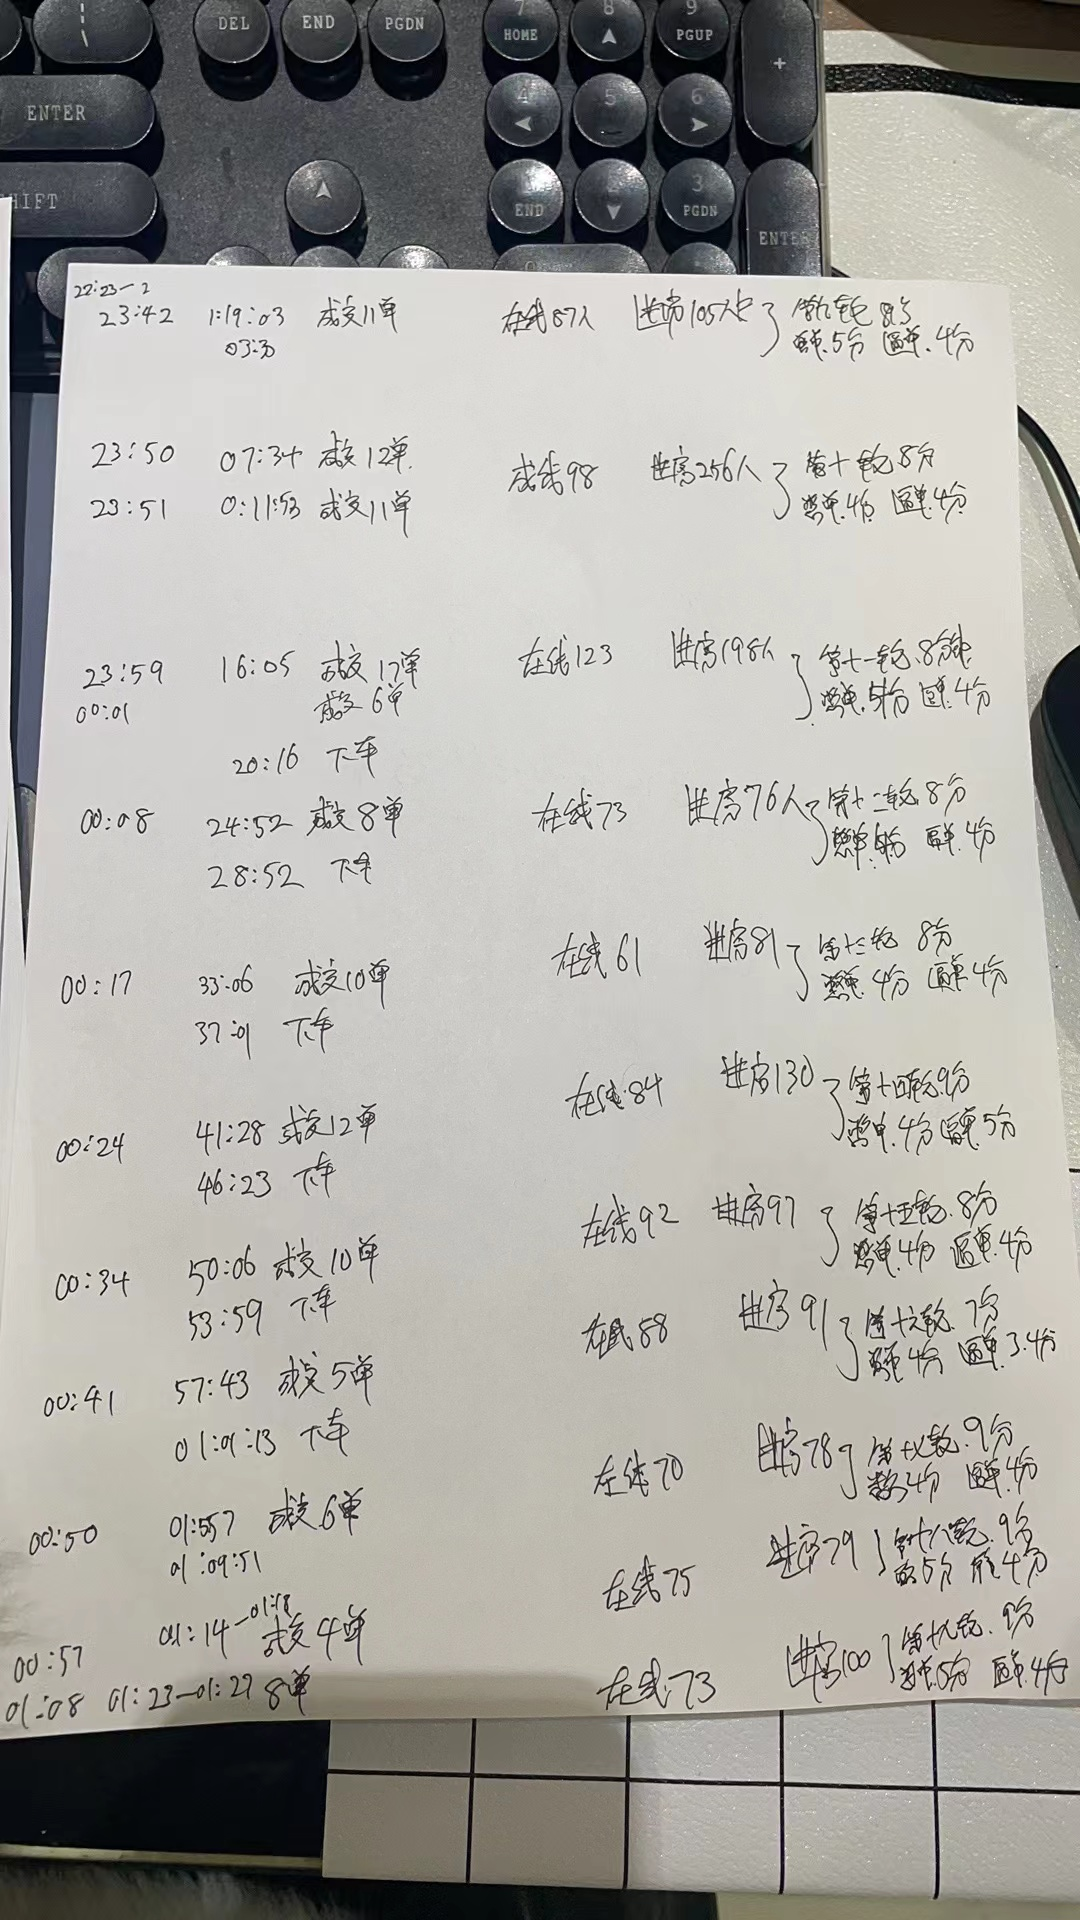 DEL END PGDN
7 HOME 8 9 PGUP +
ENTER
4 5 6
HIFT
END 2 3 PGDN
ENTER
22:23-2
23:42 1:19:03 成交11单 在线87人 进房105人
03:30 5分 4分
23:50 07:34 成交12单 在线98 进房256人 第十轮 8分
23:51 0:11:53 成交11单 憋单.4分 逼单.4分
23:59 16:05 成交17单 在线123 进房198人 第十一轮.8分钟
00:01 成交6单 憋单 逼单.4分
20:16 下车
00:08 24:52 成交8单 在线73 进房76人 第十二轮.8分
28:52 下车 憋单 逼单.4分
00:17 33:06 成交10单 在线61 进房81 第十三轮 8分
37:01 下车 憋单.4分 逼单4分
00:24 41:28 成交12单 在线84 进房130 第十四轮.9分
46:23 下车 憋单.4分 逼单.5分
00:34 50:06 成交10单 在线92 进房97 第十五轮.8分
53:59 下车 憋单.4分 逼单.4分
00:41 57:43 成交5单 在线88 进房91 第十六轮.7分
01:01:13 下车 憋单4分 逼单3.4分
00:50 成交6单 在线70 进房78 第十七轮.9分
01:09:51 4分 逼单.4分
00:57 01:14-01:18 成交4单 在线75 进房79 第十八轮.9分
5分 4分
01:08 01:23-01:27 8单 在线73 进房100 第十九轮.9分
憋单.5分 逼单.4分